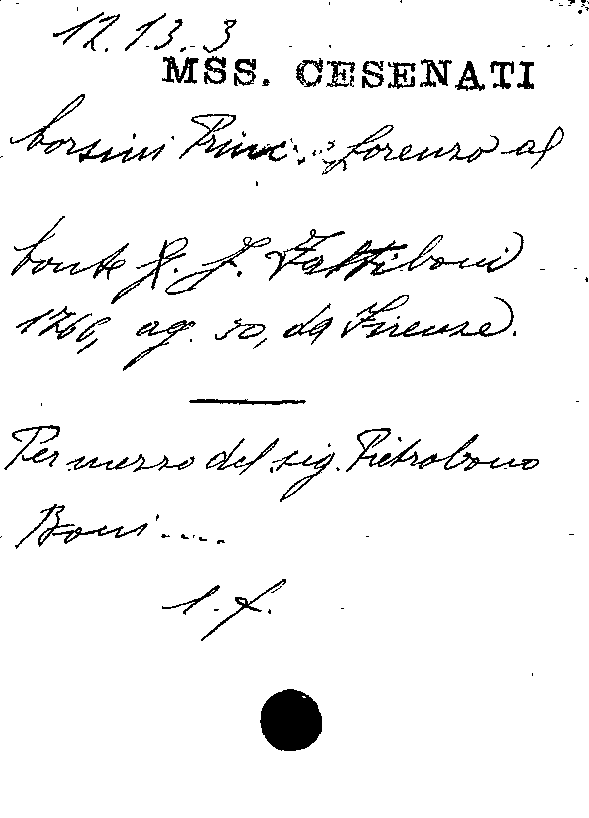 12.13.3
MSS. CESENATI
Corsini Princ. Lorenzo al
Conte G. F. Fattiboni
1766, ag. 30, da Firenze.
Per mezzo del sig. Pietrobono
Boni....
1. f.